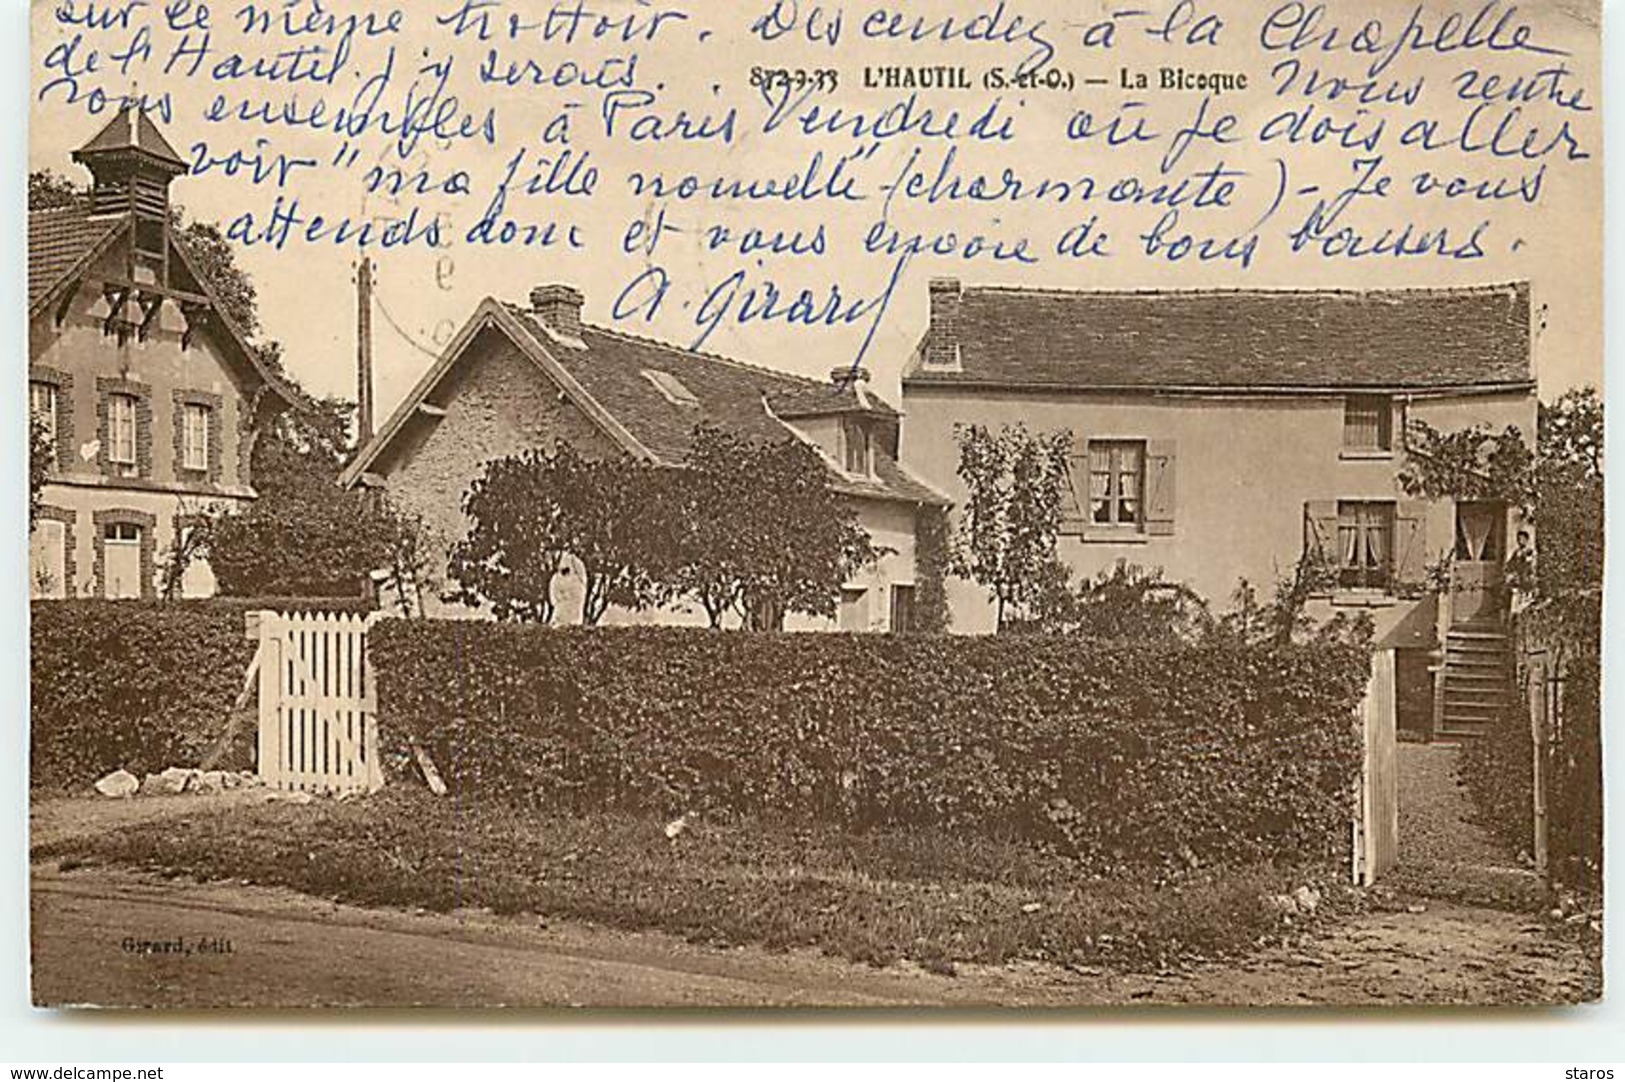 sur le même trottoir. Descendez à la Chapelle
de l'Hautil. j'y serais.
872-9-33 L'HAUTIL (S.-et-O.) — La Bicoque
Nous rentre
rons ensembles à Paris Vendredi où je dois aller
voir "ma fille nouvelle" (charmante) - Je vous
attends donc et vous envoie de bons baisers.
A. Girard
Girard, édit.
www.delcampe.net
staros